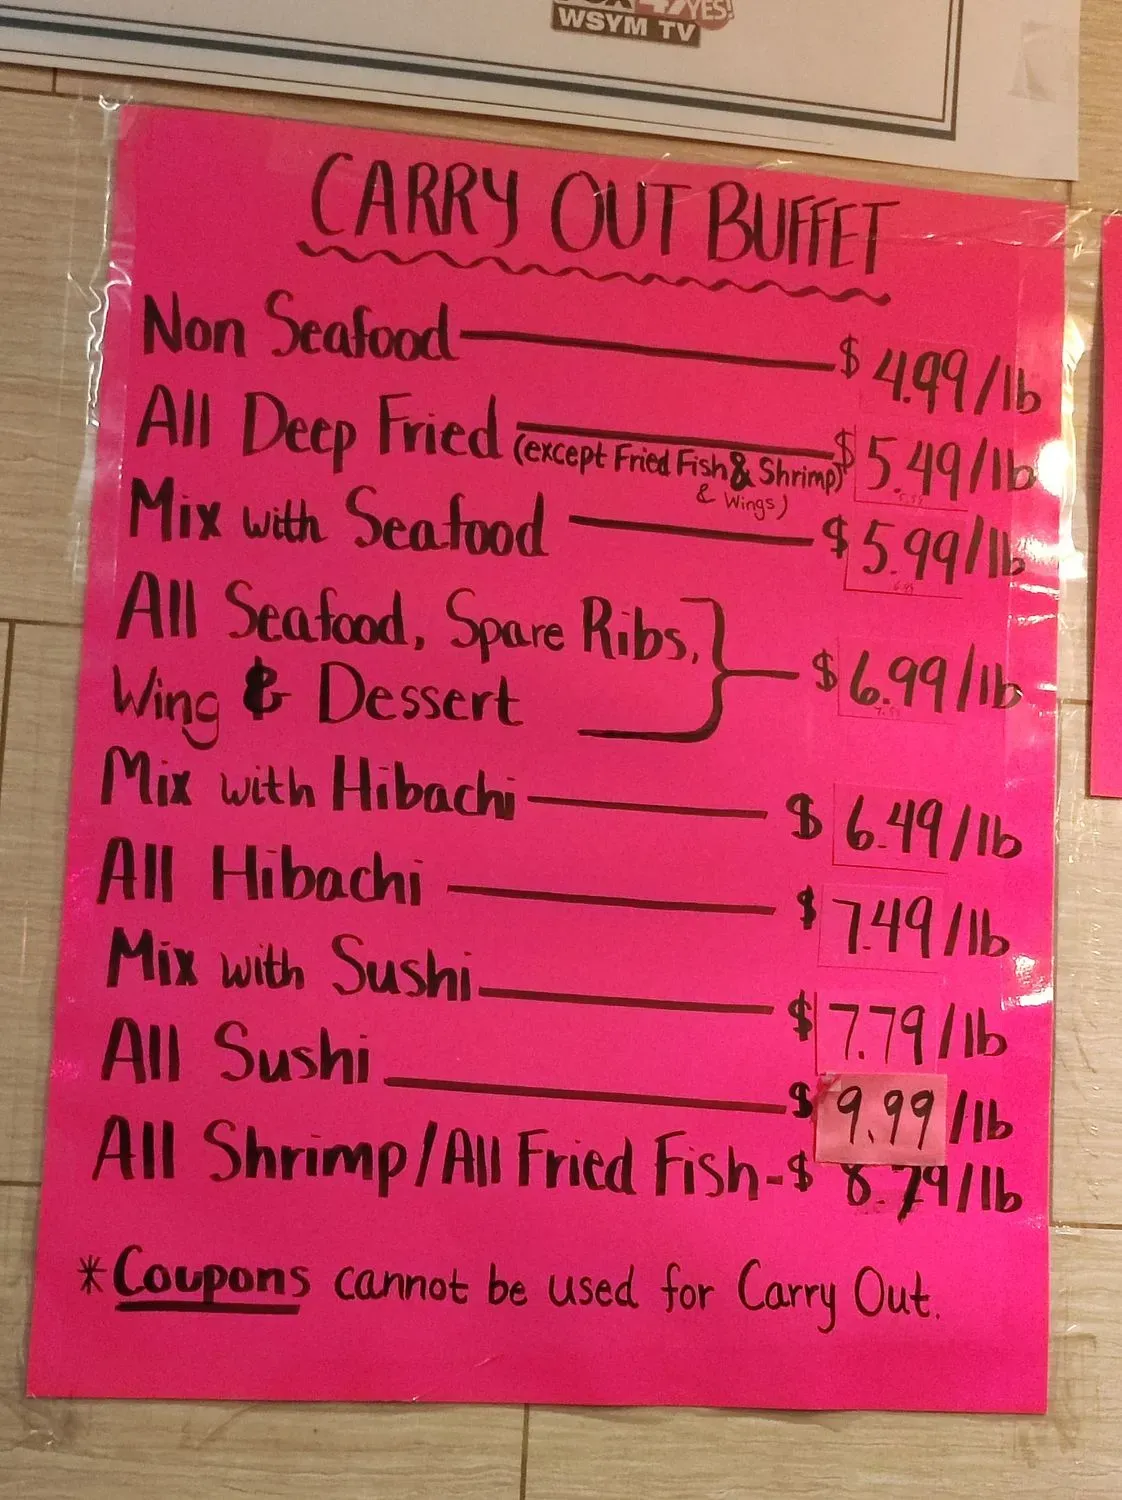 47 YES!
WSYM TV
CARRY OUT BUFFET
Non Seafood $ 4.99/lb
All Deep Fried (except Fried Fish & Shrimp) $ 5.49/lb
& Wings)
Mix with Seafood $ 5.99/lb
All Seafood, Spare Ribs,
Wing & Dessert $ 6.99/lb
Mix with Hibachi $ 6.49/lb
All Hibachi $ 7.49/lb
Mix with Sushi $ 7.79/lb
All Sushi $ 9.99/lb
All Shrimp/All Fried Fish - $ 8.79/lb
*Coupons cannot be used for Carry Out.